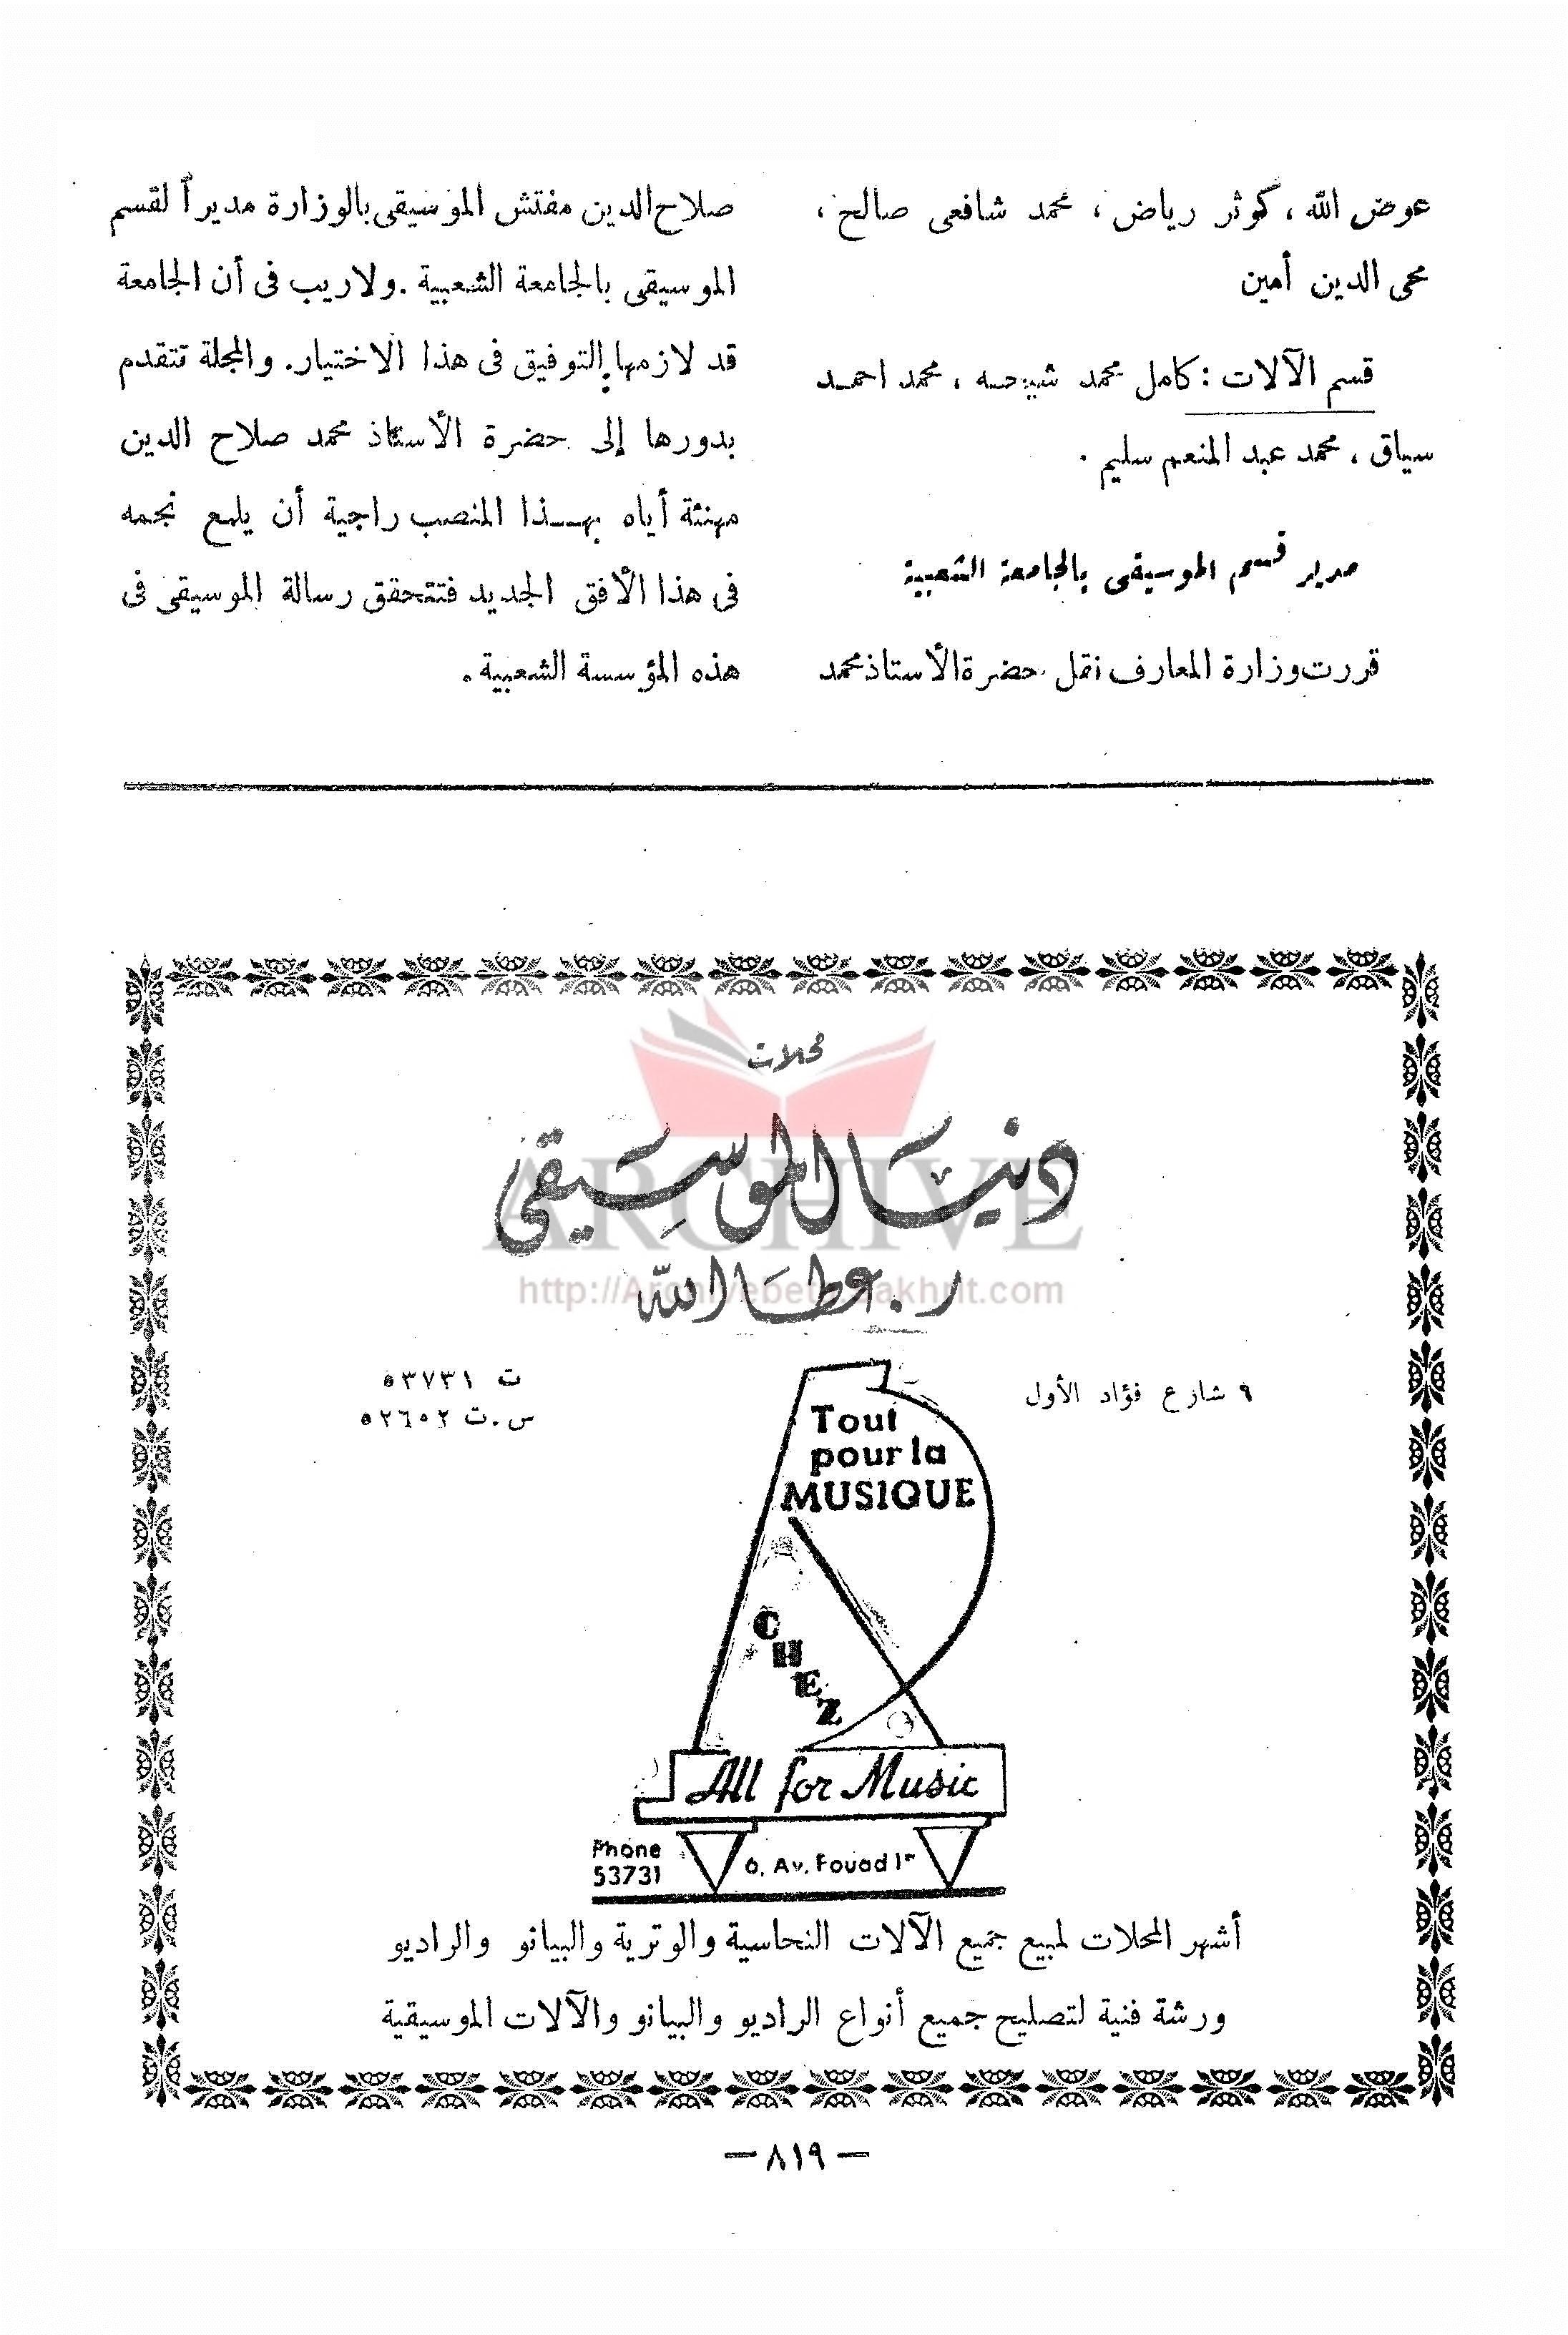 عوض الله ، كوثر رياض ، محمد شافعى صالح ،
محى الدين أمين
قسم الآلات : كامل محمد شيحه ، محمد احمد
سياق ، محمد عبد المنعم سليم .
مدير قسم الموسيقى بالجامعة الشعبية
قررت وزارة المعارف نقل حضرة الأستاذ محمد
صلاح الدين مفتش الموسيقى بالوزارة مديراً لقسم
الموسيقى بالجامعة الشعبية . ولاريب فى أن الجامعة
قد لازمها التوفيق فى هذا الاختيار. والمجلة تتقدم
بدورها إلى حضرة الأستاذ محمد صلاح الدين
مهنئة أياه بهذا المنصب راجية أن يلمع نجمه
فى هذا الأفق الجديد فتتحقق رسالة الموسيقى فى
هذه المؤسسة الشعبية .
محلات
دنيا الموسيقى
ر . عطا الله
ARCHIVE
٩ شارع فؤاد الأول
ت ٥٣٧٣١
س . ت ٥٢٦٥٢
Tout
pour la
MUSIQUE
CHEZ
All for Music
Phone
53731
Av. Fouad 1er
أشهر المحلات لمبيع جميع الآلات النحاسية والوترية والبيانو والراديو
ورشة فنية لتصليح جميع أنواع الراديو والبيانو والآلات الموسيقية
— ٨١٩ —